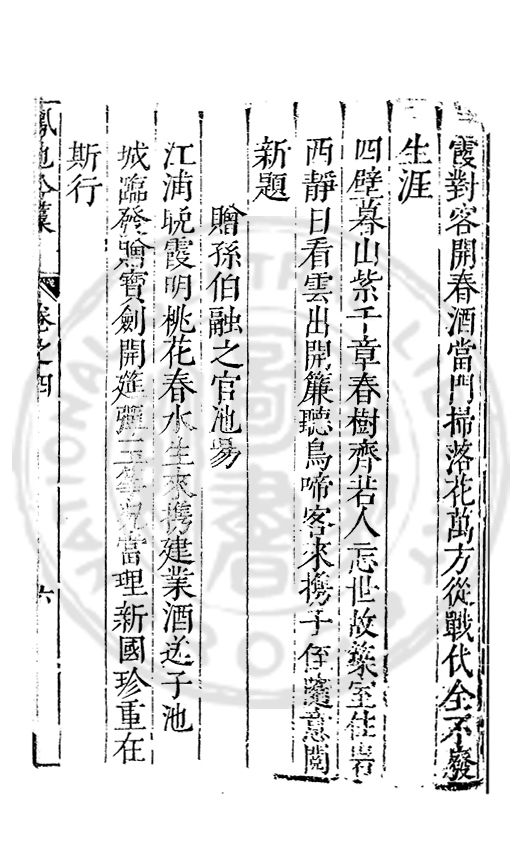 霞對客開春酒當門掃落花萬方從戰伐全不廢
生涯
四壁暮山紫千章春樹齊若人忘世故築室住岩
西靜日看雲出開簾聽鳥啼客來携子侄隨意閱
新題
贈孫伯融之官池昜
江浦晚霞明桃花春水生來携建業酒送子池
城臨發贈寳劍開筵彈玉箏兄當理新國珍重在
斯行
鳳池吟藁
卷之四
六